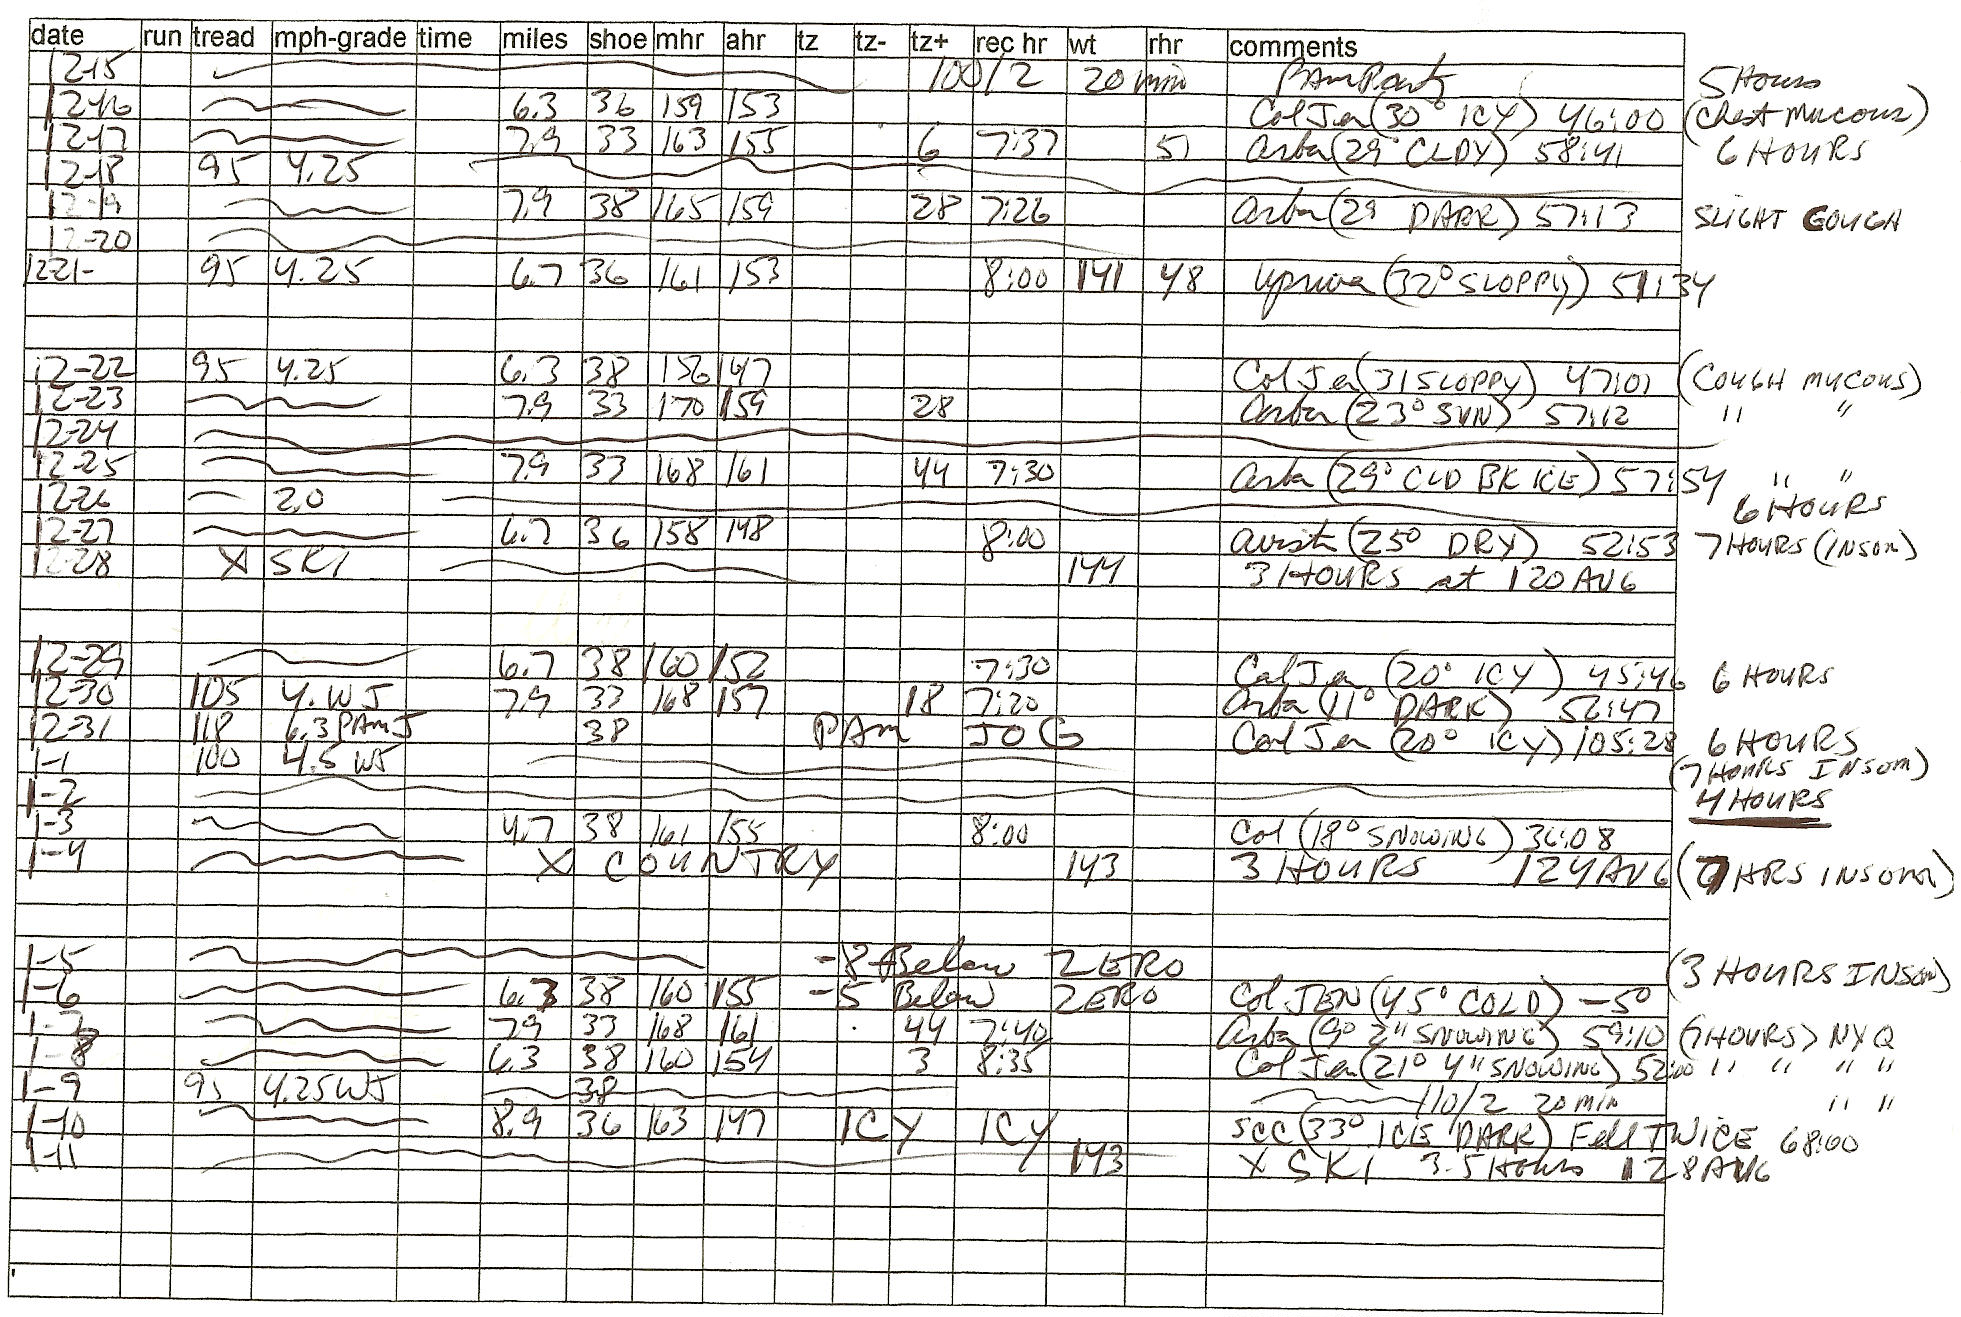 date run tread mph-grade time miles shoe mhr ahr tz tz- tz+ rec hr wt rhr comments
12-15 100/2 20 min 5 Hours
12-16 6.3 36 159 153 Col Jen (30° ICY) 46:00 (Chest Mucous)
12-17 7.9 33 163 155 6 7:37 51 Arba (29° CLDY) 58:41 6 HOURS
12-18 95 4.25
12-19 7.9 38 165 159 28 7:26 Arba (29 DARK) 57:13 SLIGHT COUGH
12-20
12-21- 95 4.25 6.7 36 161 153 8:00 141 48 (32° SLOPPY) 51:34
12-22 95 4.25 6.3 38 156 147 Col Jen (31 SLOPPY) 47:01 (COUGH MUCOUS)
12-23 7.9 33 170 159 28 Arba (23° SUN) 57:12 " "
12-24
12-25 7.9 33 168 161 44 7:30 Arba (29° CLD BK ICE) 57:54 " "
12-26 2.0 6 HOURS
12-27 6.7 36 158 148 8:00 (25° DRY) 52:53 7 HOURS (INSOM)
12-28 X SKI 144 3 HOURS at 120 AVG
12-29 6.7 38 160 152 7:30 Col Jen (20° ICY) 45:46 6 HOURS
12-30 105 4. WJ 7.9 33 168 157 18 7:20 Arba (11° DARK) 56:47
12-31 118 6.3 PAM J 38 PAM JOG Col Jen (20° ICY) 105:28 6 HOURS
1-1 100 4.5 WJ (7 HOURS INSOM)
1-2 4 HOURS
1-3 4.7 38 161 155 8:00 Col (18° SNOWING) 36:08
1-4 X COUNTRY 143 3 HOURS 124 AVG (7 HRS INSOM)
1-5 -8 Below ZERO (3 HOURS INSOM)
1-6 6.3 38 160 155 -5 Below ZERO Col JEN (45° COLD) -5°
1-7 7.9 33 168 161 44 7:40 Arba (9° 2" SNOWING) 59:10 (7 HOURS) NYQ
1-8 6.3 38 160 154 3 8:35 Col Jen (21° 4" SNOWING) 52:00 " " " "
1-9 95 4.25 WJ 38 110/2 20 min " "
1-10 8.9 36 163 147 ICY ICY SCC (33° ICE DARK) Fell TWICE 68:00
1-11 143 X SKI 3.5 Hours 128 AVG